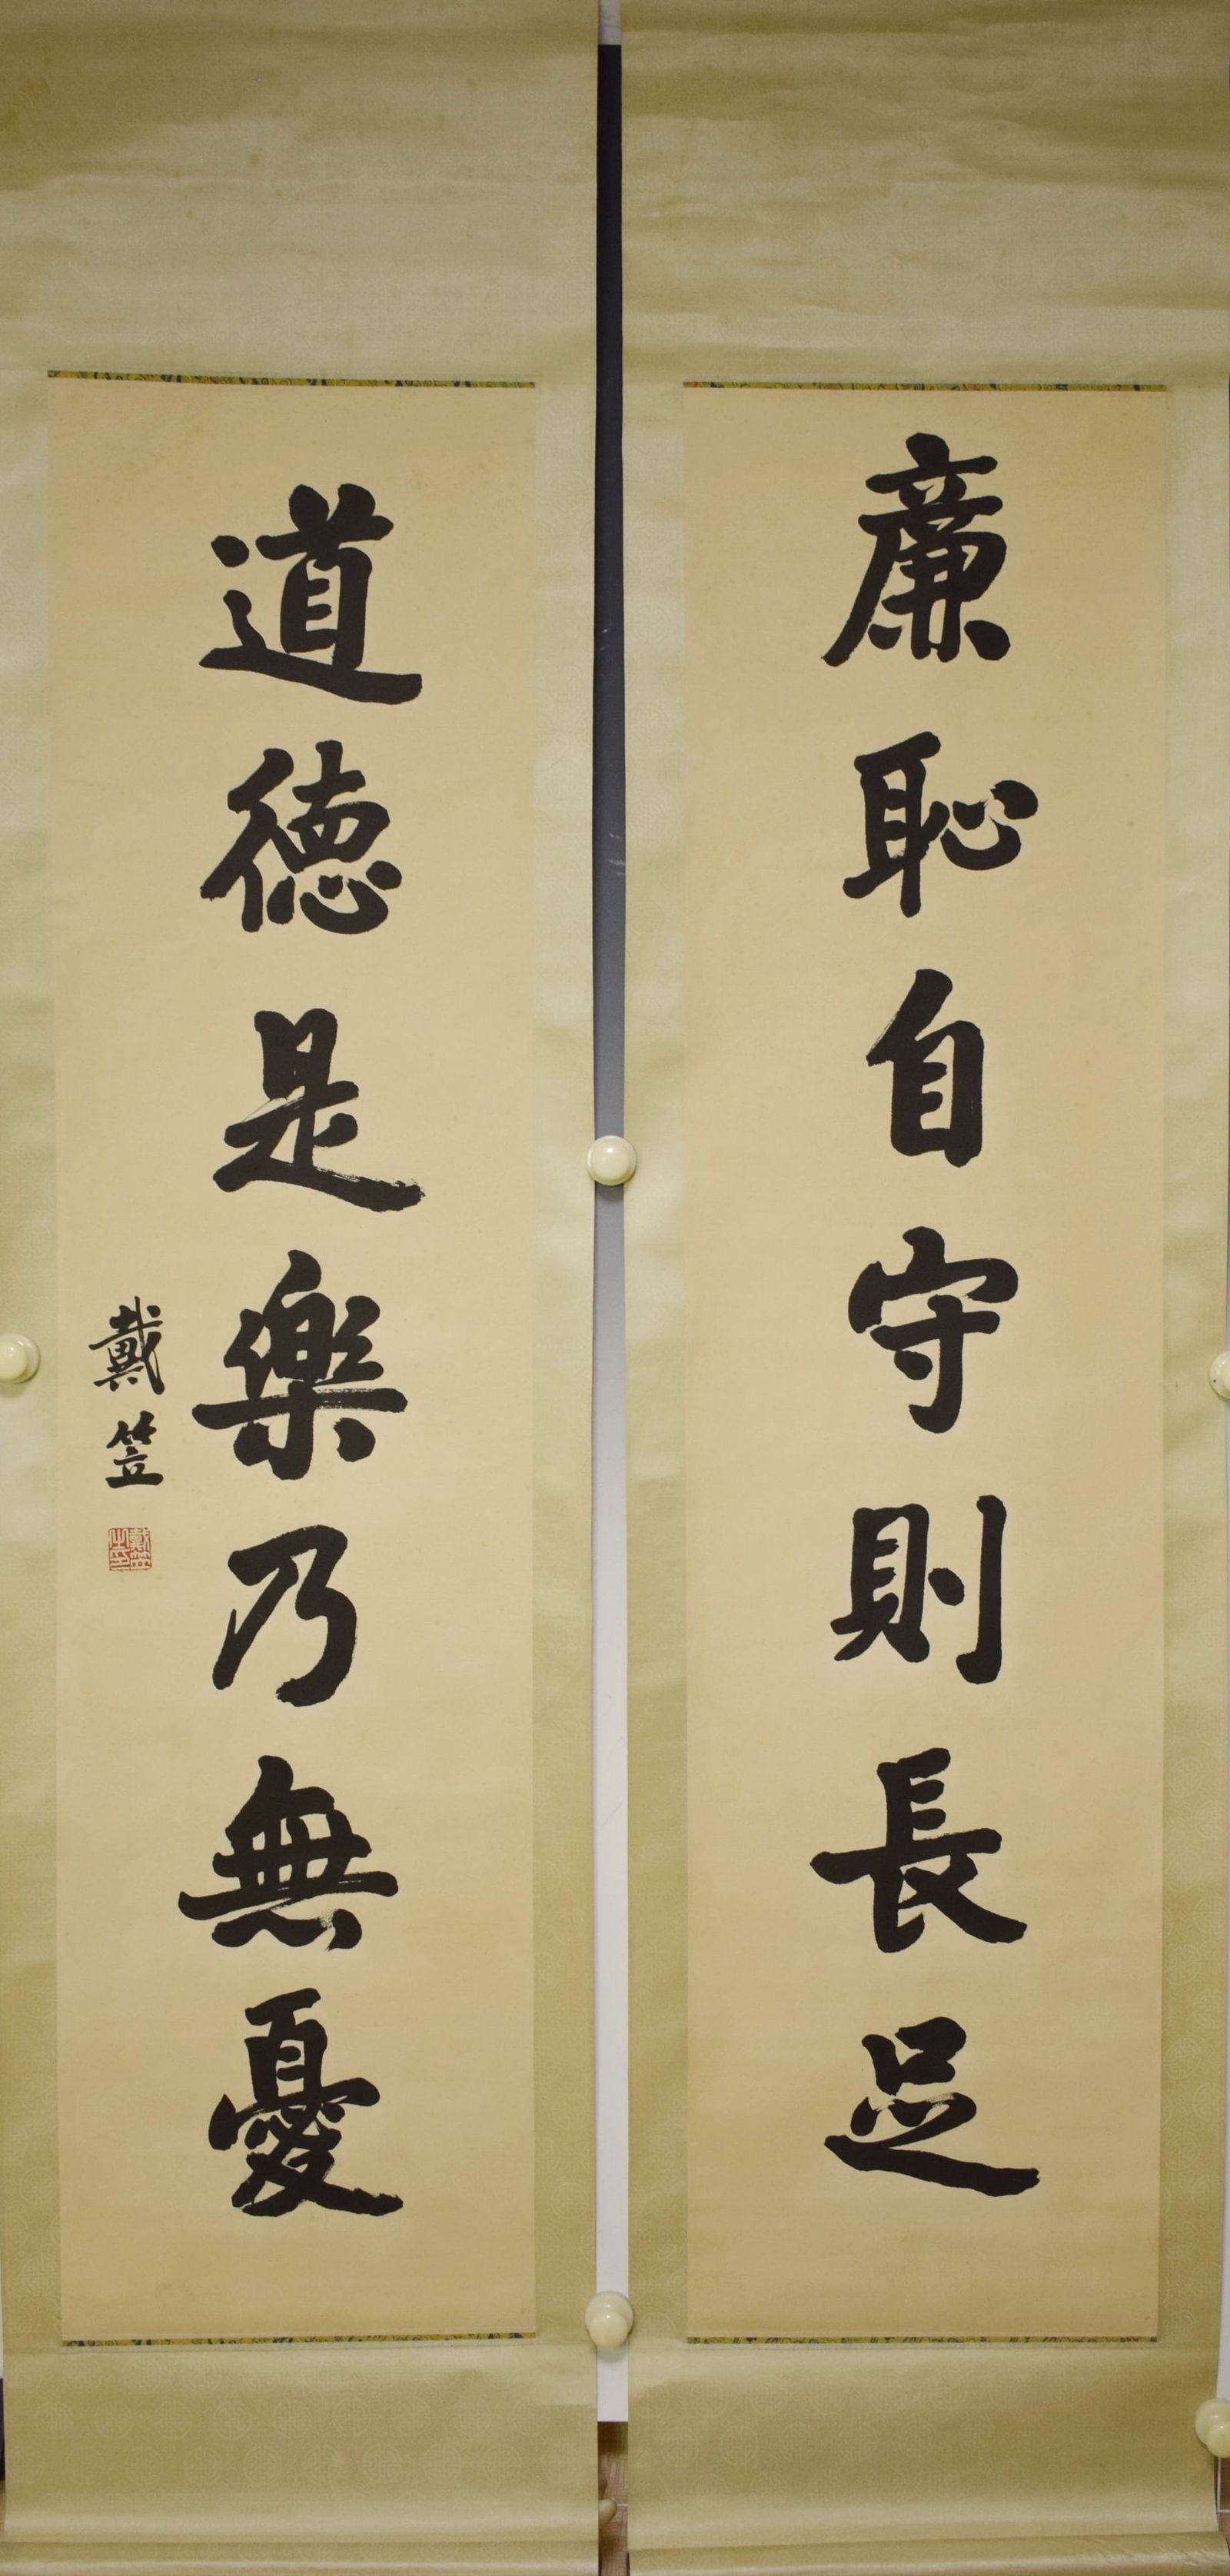 廉恥自守則長足
道德是樂乃無憂
戴笠
戴笠之印